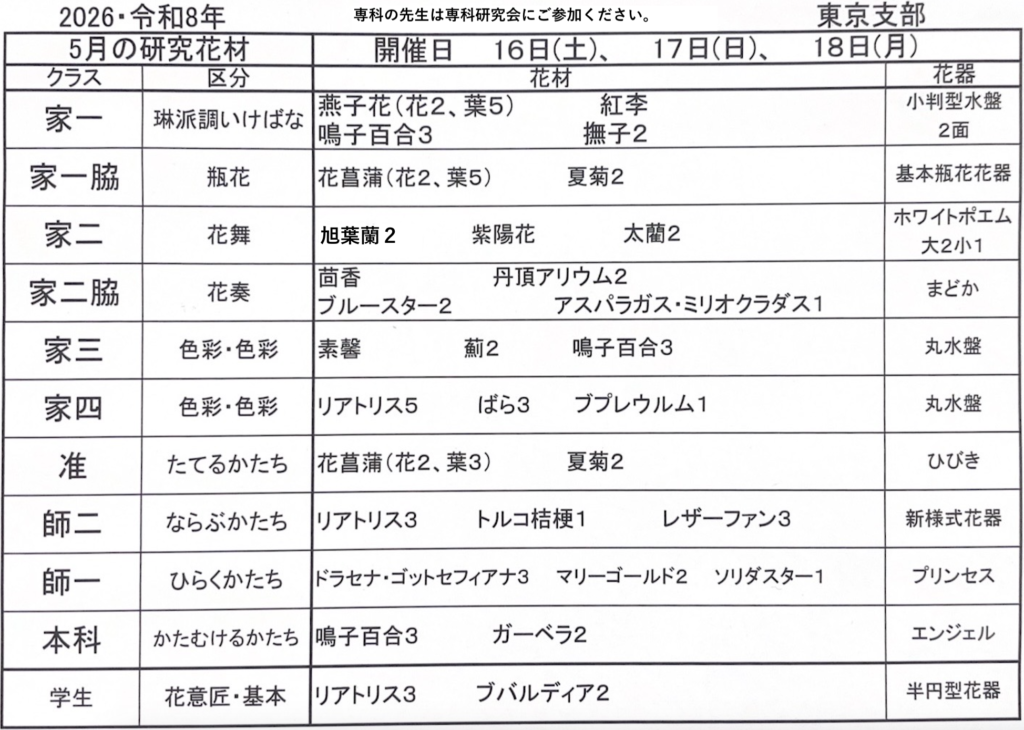 2026・令和8年 専科の先生は専科研究会にご参加ください。 東京支部
5月の研究花材 開催日 16日(土)、 17日(日)、 18日(月)
クラス 区分 花材 花器
家一 琳派調いけばな 燕子花(花2、葉5) 紅李 小判型水盤
鳴子百合3 撫子2 2面
家一脇 瓶花 花菖蒲(花2、葉5) 夏菊2 基本瓶花花器
家二 花舞 旭葉蘭2 紫陽花 太藺2 ホワイトポエム
大2小1
家二脇 花奏 茴香 丹頂アリウム2 まどか
ブルースター2 アスパラガス・ミリオクラダス1
家三 色彩・色彩 素馨 薊2 鳴子百合3 丸水盤
家四 色彩・色彩 リアトリス5 ばら3 ブプレウルム1 丸水盤
准 たてるかたち 花菖蒲(花2、葉3) 夏菊2 ひびき
師二 ならぶかたち リアトリス3 トルコ桔梗1 レザーファン3 新様式花器
師一 ひらくかたち ドラセナ・ゴットセフィアナ3 マリーゴールド2 ソリダスター1 プリンセス
本科 かたむけるかたち 鳴子百合3 ガーベラ2 エンジェル
学生 花意匠・基本 リアトリス3 ブバルディア2 半円型花器